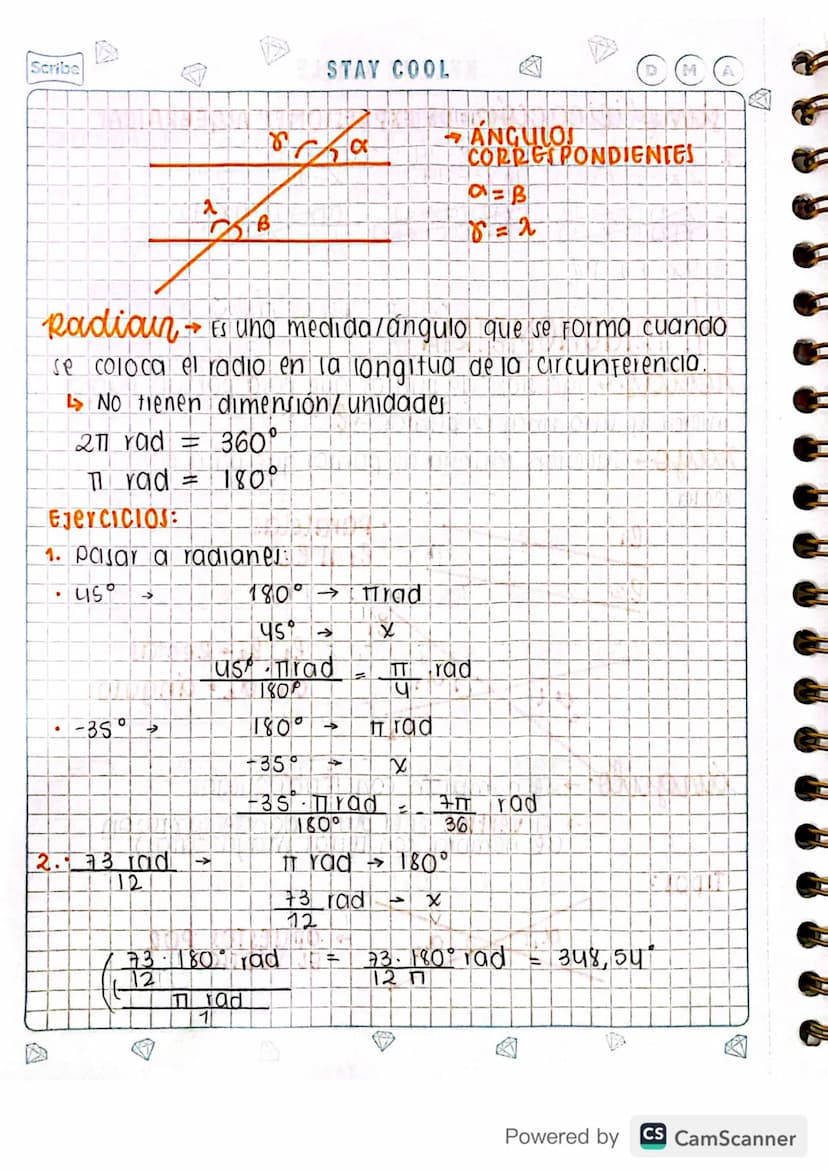 Scribe
STAY COOL
D M A
γ α
λ β
→ ÁNGULOS
CORRESPONDIENTES
α = β
γ = λ
Radian → Es una medida/ángulo que se forma cuando
se coloca el radio en la longitud de la circunferencia.
↳ No tienen dimensión/unidades.
2π rad = 360°
π rad = 180°
Ejercicios:
1. Pasar a radianes:
· 45° → 180° → π rad
45° → x
45° · π rad / 180° = π/4 . rad
· -35° → 180° → π rad
-35° → x
-35° · π rad / 180° = - 7π/36 rad
2. · 73 rad / 12 → π rad → 180°
73/12 rad → x
73/12 · 180° rad / π rad / 1 = 73 · 180° / 12 π rad = 348,54°
Powered by CS CamScanner